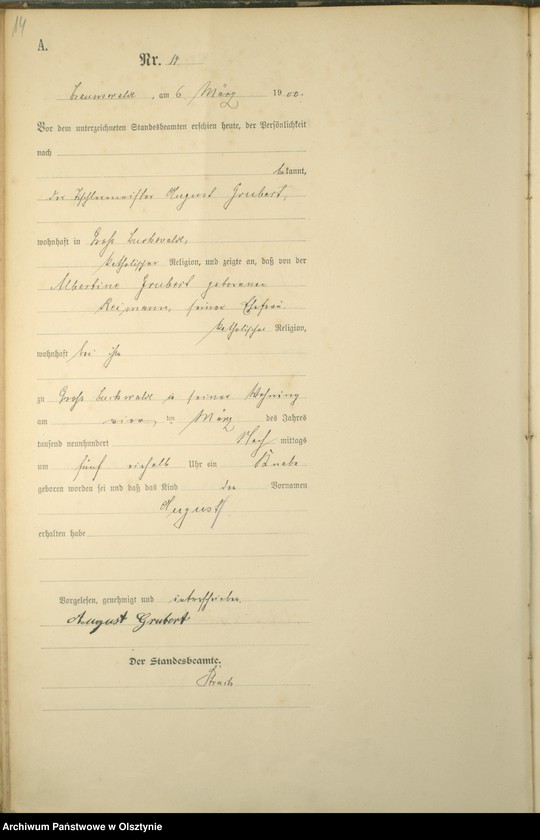 14
A.
Nr. 14
Braunswalde, am 6. März 1900.
Vor dem unterzeichneten Standesbeamten erschien heute, der Persönlichkeit
nach
bekannt,
der Tischlermeister August Grubert,
wohnhaft in Groß Buchwalde,
katholischer Religion, und zeigte an, daß von der
Albertine Grubert geborenen
Reimann, seiner Ehefrau
katholischer Religion,
wohnhaft bei ihm
zu Groß Buchwalde in seiner Wohnung
am vier ten März des Jahres
tausend neunhundert Nach mittags
um fünf einhalb Uhr ein Knabe
geboren worden sei und daß das Kind den Vornamen
August
erhalten habe
Vorgelesen, genehmigt und unterschrieben
August Grubert
Der Standesbeamte.
Archiwum Państwowe w Olsztynie